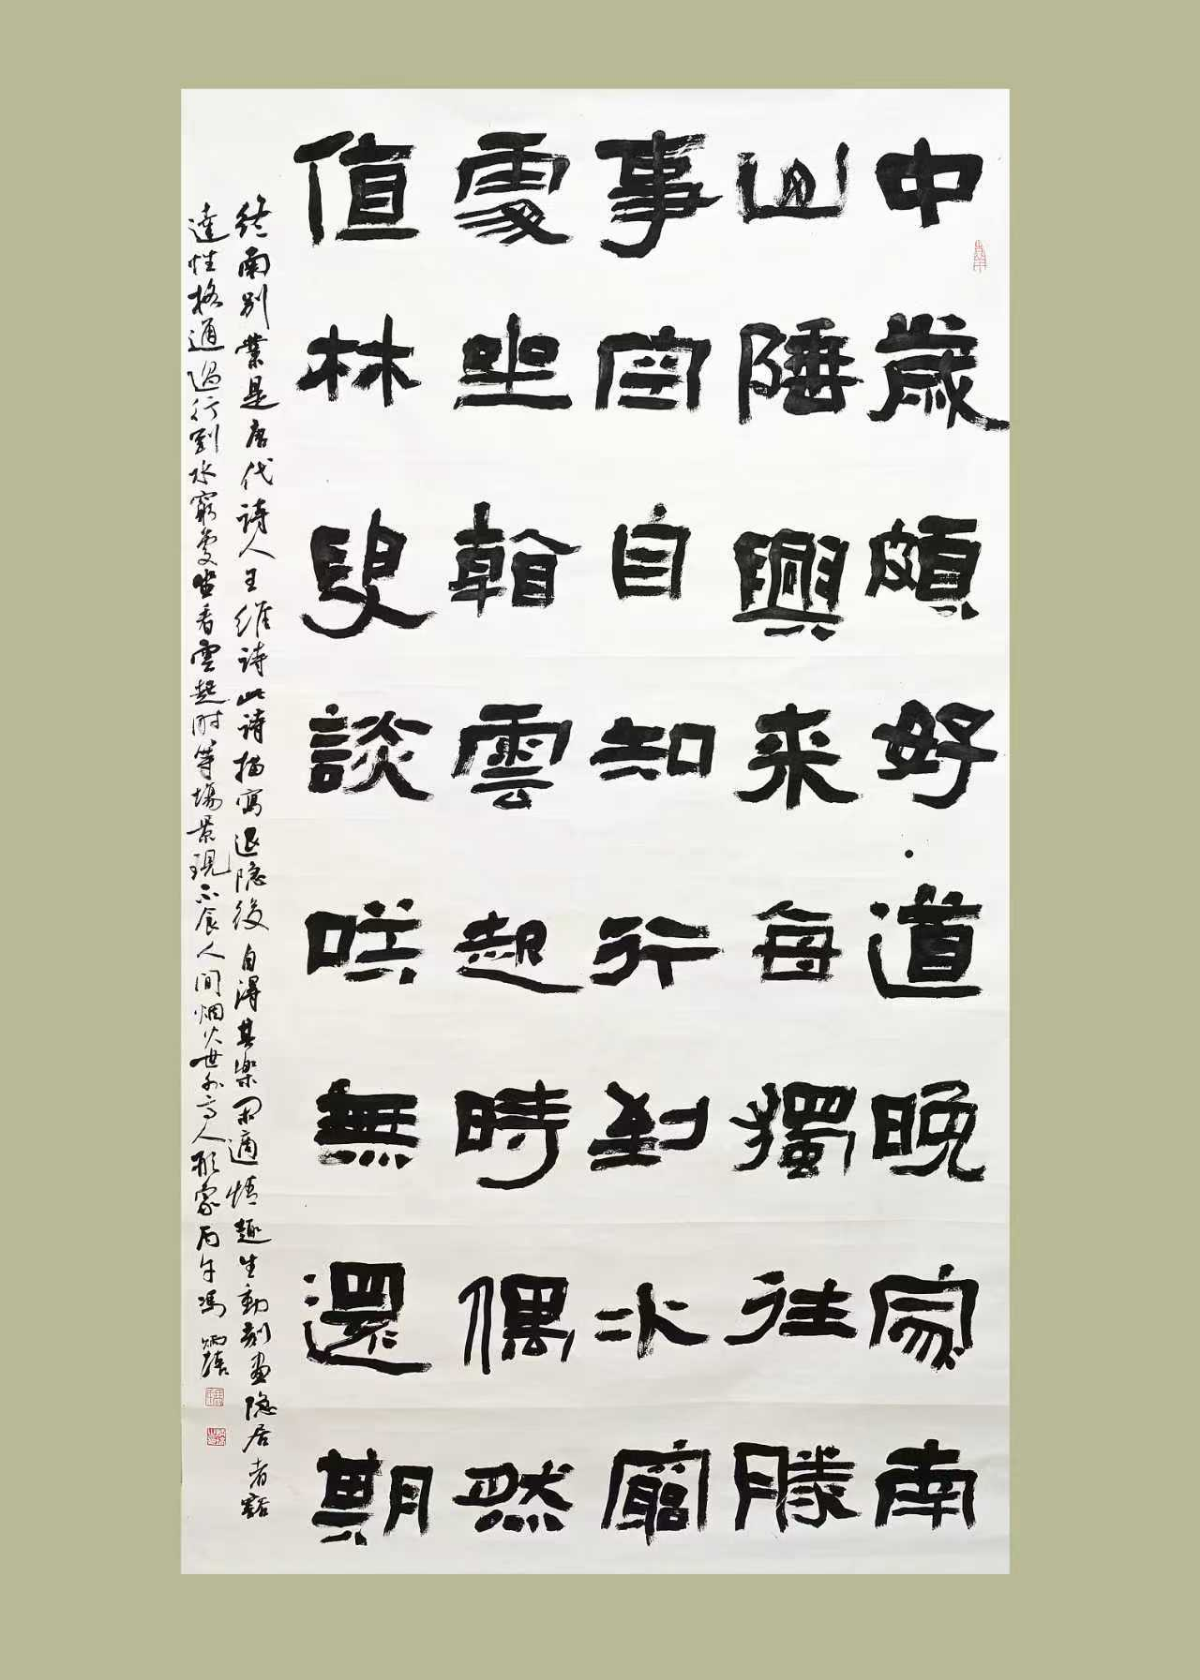 中歲頗好道晚家南
山陲興来每獨往勝
事空自知行到水窮
處坐看雲起時偶然
值林叟談咲無還期
終南别業是唐代詩人王維詩此詩描寫退隐後自得其樂閑適情趣生動刻畫隐居者豁
達性格通過行到水窮處坐看雲起时等場景現不食人間烟火世外高人形象丙午馮